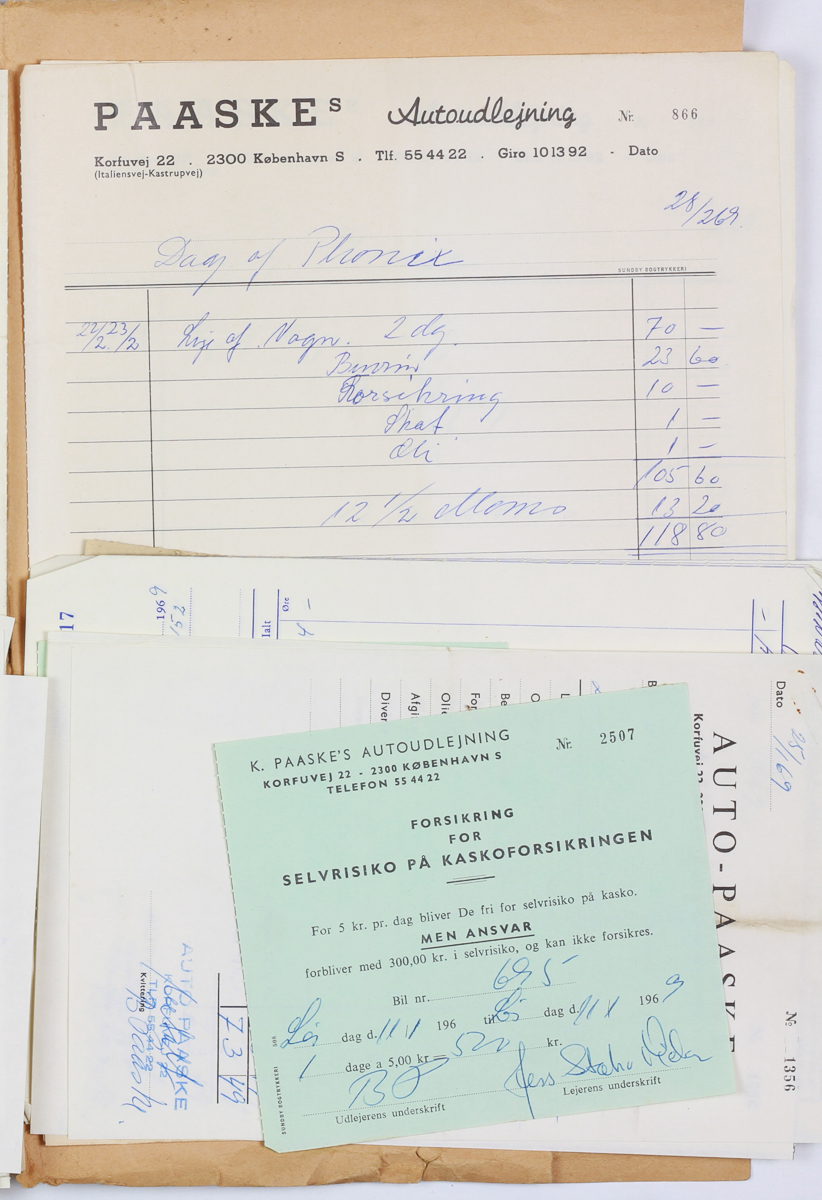 PAASKES Autoudlejning Nr. 866
Korfuvej 22 . 2300 København S . Tlf. 55 44 22 . Giro 101392 - Dato
(Italiensvej-Kastrupvej)
28/2 69.
Dag og Phonix
SUNDBY BOGTRYKKERI
22/2 23/2 Leje af Vogn. 2 dg. 70 —
Benzin 23 60
Forsikring 10 —
Skat 1 —
Oli 1 —
105 60
12 1/2 Moms 13 20
118 80
17
1969
15 2
Ialt
Øre
4 —
Diver
Afgi
Olie
For
Be
Dato
25/1 69
AUTO-PAASKE
Korfuvej 22
№ 1356
Kvittering
AUTO PAASKE
TLF. 55 44 22
73 49
K. PAASKE'S AUTOUDLEJNING Nr. 2507
KORFUVEJ 22 - 2300 KØBENHAVN S
TELEFON 55 44 22
FORSIKRING
FOR
SELVRISIKO PÅ KASKOFORSIKRINGEN
For 5 kr. pr. dag bliver De fri for selvrisiko på kasko.
MEN ANSVAR
forbliver med 300,00 kr. i selvrisiko, og kan ikke forsikres.
Bil nr. 695
Lør dag d. 11/1 196 til dag d. 11/1 1969
1 dage a 5,00 kr = 500 kr.
BP Jens
Udlejerens underskrift Lejerens underskrift
SUNDBY BOGTRYKKERI